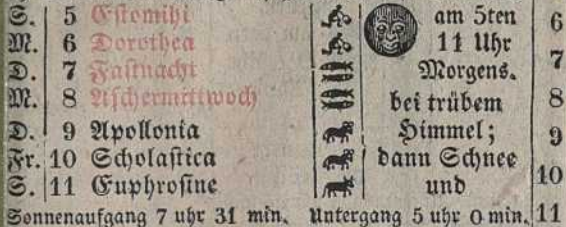 S. 5 Estomihi am 5ten 6
M. 6 Dorothea 11 Uhr
D. 7 Fastnacht Morgens. 7
M. 8 Aschermittwoch bei trübem 8
D. 9 Apollonia Himmel; 9
Fr. 10 Scholastica dann Schnee
S. 11 Euphrosine und 10
Sonnenaufgang 7 uhr 31 min. Untergang 5 uhr 0 min. 11